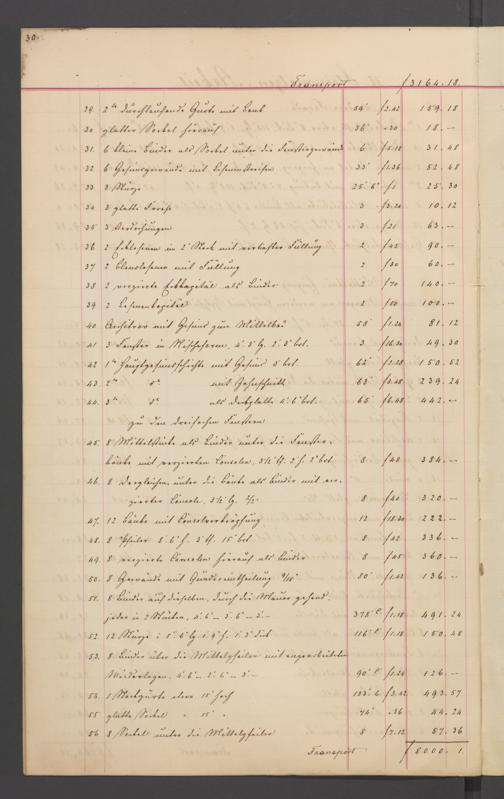 30.
Transport f 3164.18.
29. 2te durchlaufende Gurte mit Band 59' f 2.42 159.18
30 glatter Sockel hierauf 36' -.30 18.--
31. 6 kleine Binder als Sockel unter die Fenstergewände 6 f 5.18 31.48
32 6 Gesimsgewände mit Lesenenstreifen 33' f 1.36 52.48
33 3 Stürze 25'.6" f 1 25.30
34 3 glatte Friese 3 f 3.24 10.12
35 3 Verdachungen 3 f 21 63.--
36 2 Ecklesenen in 2 Stock mit vertiefter Füllung 2 f 45 90.--
37 2 Lesenen mit Füllung 2 f 30 60.--
38 2 verzierte Eckkapitäl als Binder 2 f 70 140.--
39 2 Lesenenkapitäl 2 f 50 100.--
40 Architrav mit Gesims zum Mittelbau 58' f 1.24 81.12
41 3 Fenster in 3 f 16.30 49.30
42 1te Hauptgesimsschichte mit Gesims 62' 150.52
43. 2te do mit Zahnschnitt 63' f 3.48 239.24
44. 3te do als Deckplatte 65' f 6.48 442.--
zu den dreifachen Fenstern
45. 8 Mittelstücke als Binder unter die Fenster-
bänke mit verzierten Consolen, 8 384.--
46. 8 dergleichen unter die Bänke als Binder mit ver-
zierter Console, 8 f 40 320.--
47. 12 Bänke mit Consolverkröpfung 12 f 18.30 222.--
48. 8 Pfeiler 8 f 42 336.--
49. 8 verzierte Consolen hierauf als Binder 8 f 45 360.--
50. 8 Gewände mit 80' f 1.42 136.--
51. 8 Binder auf dieselben, durch die Mauer gehend,
jeder in 2 Stücken, 378' f 1.18 491.24
52. 12 Stürze 116' f 1.18 150.48
53. 8 Binder über die Mittelpfeiler mit angearbeiteten
Widerlagen, 90' f 1.24 126.--
54. 1 Stockgurte 15" hoch f 3.42 493.57
55 glatte Sockel " 15" " 74' .36 44.24
56 8 Sockel unter die Mittelpfeiler 8 f 7.12 57.36
Transport f 8000.1.